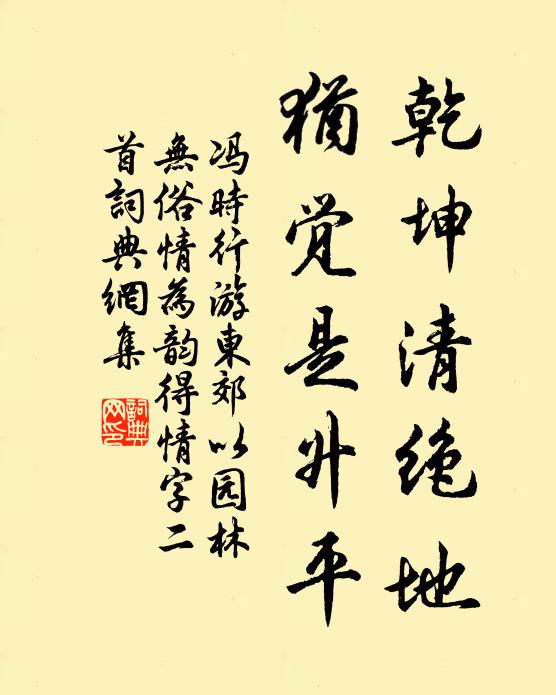 乾坤清绝地
犹觉是升平
冯時行游東郊以园林
無俗情為韵得情字二
首詞典網集
詞典网印